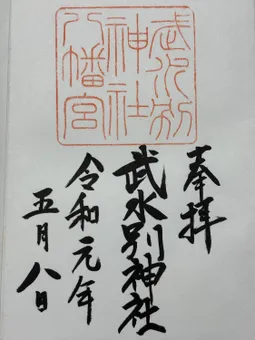 奉拝
武水別神社
令和元年
五月八日
武水別
神社
八幡宮